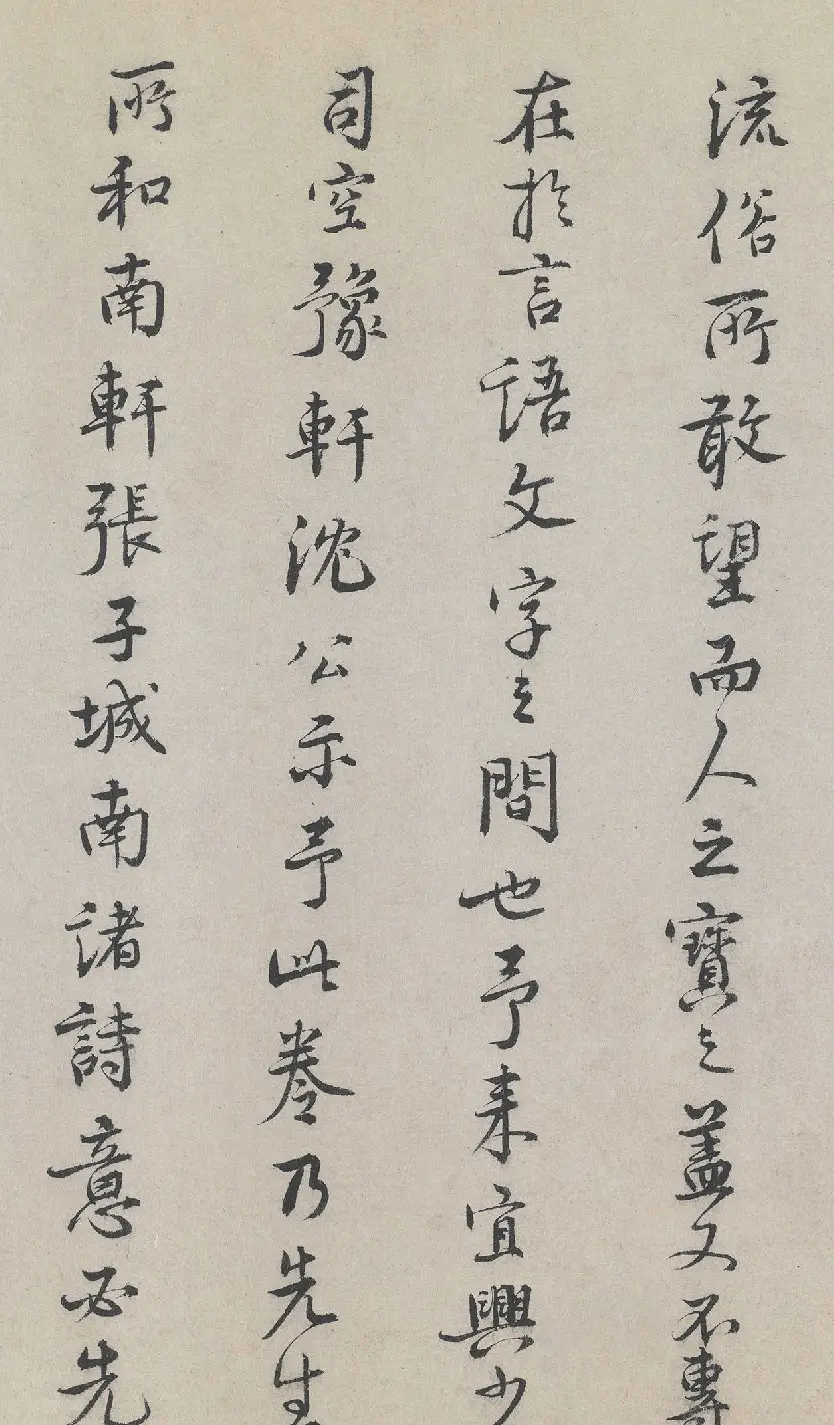 流俗所敢望而人之寶之蓋又不專
在於言語文字之間也予来宜興少
司空豫軒沈公示予此卷乃先生
所和南軒張子城南諸詩意必先